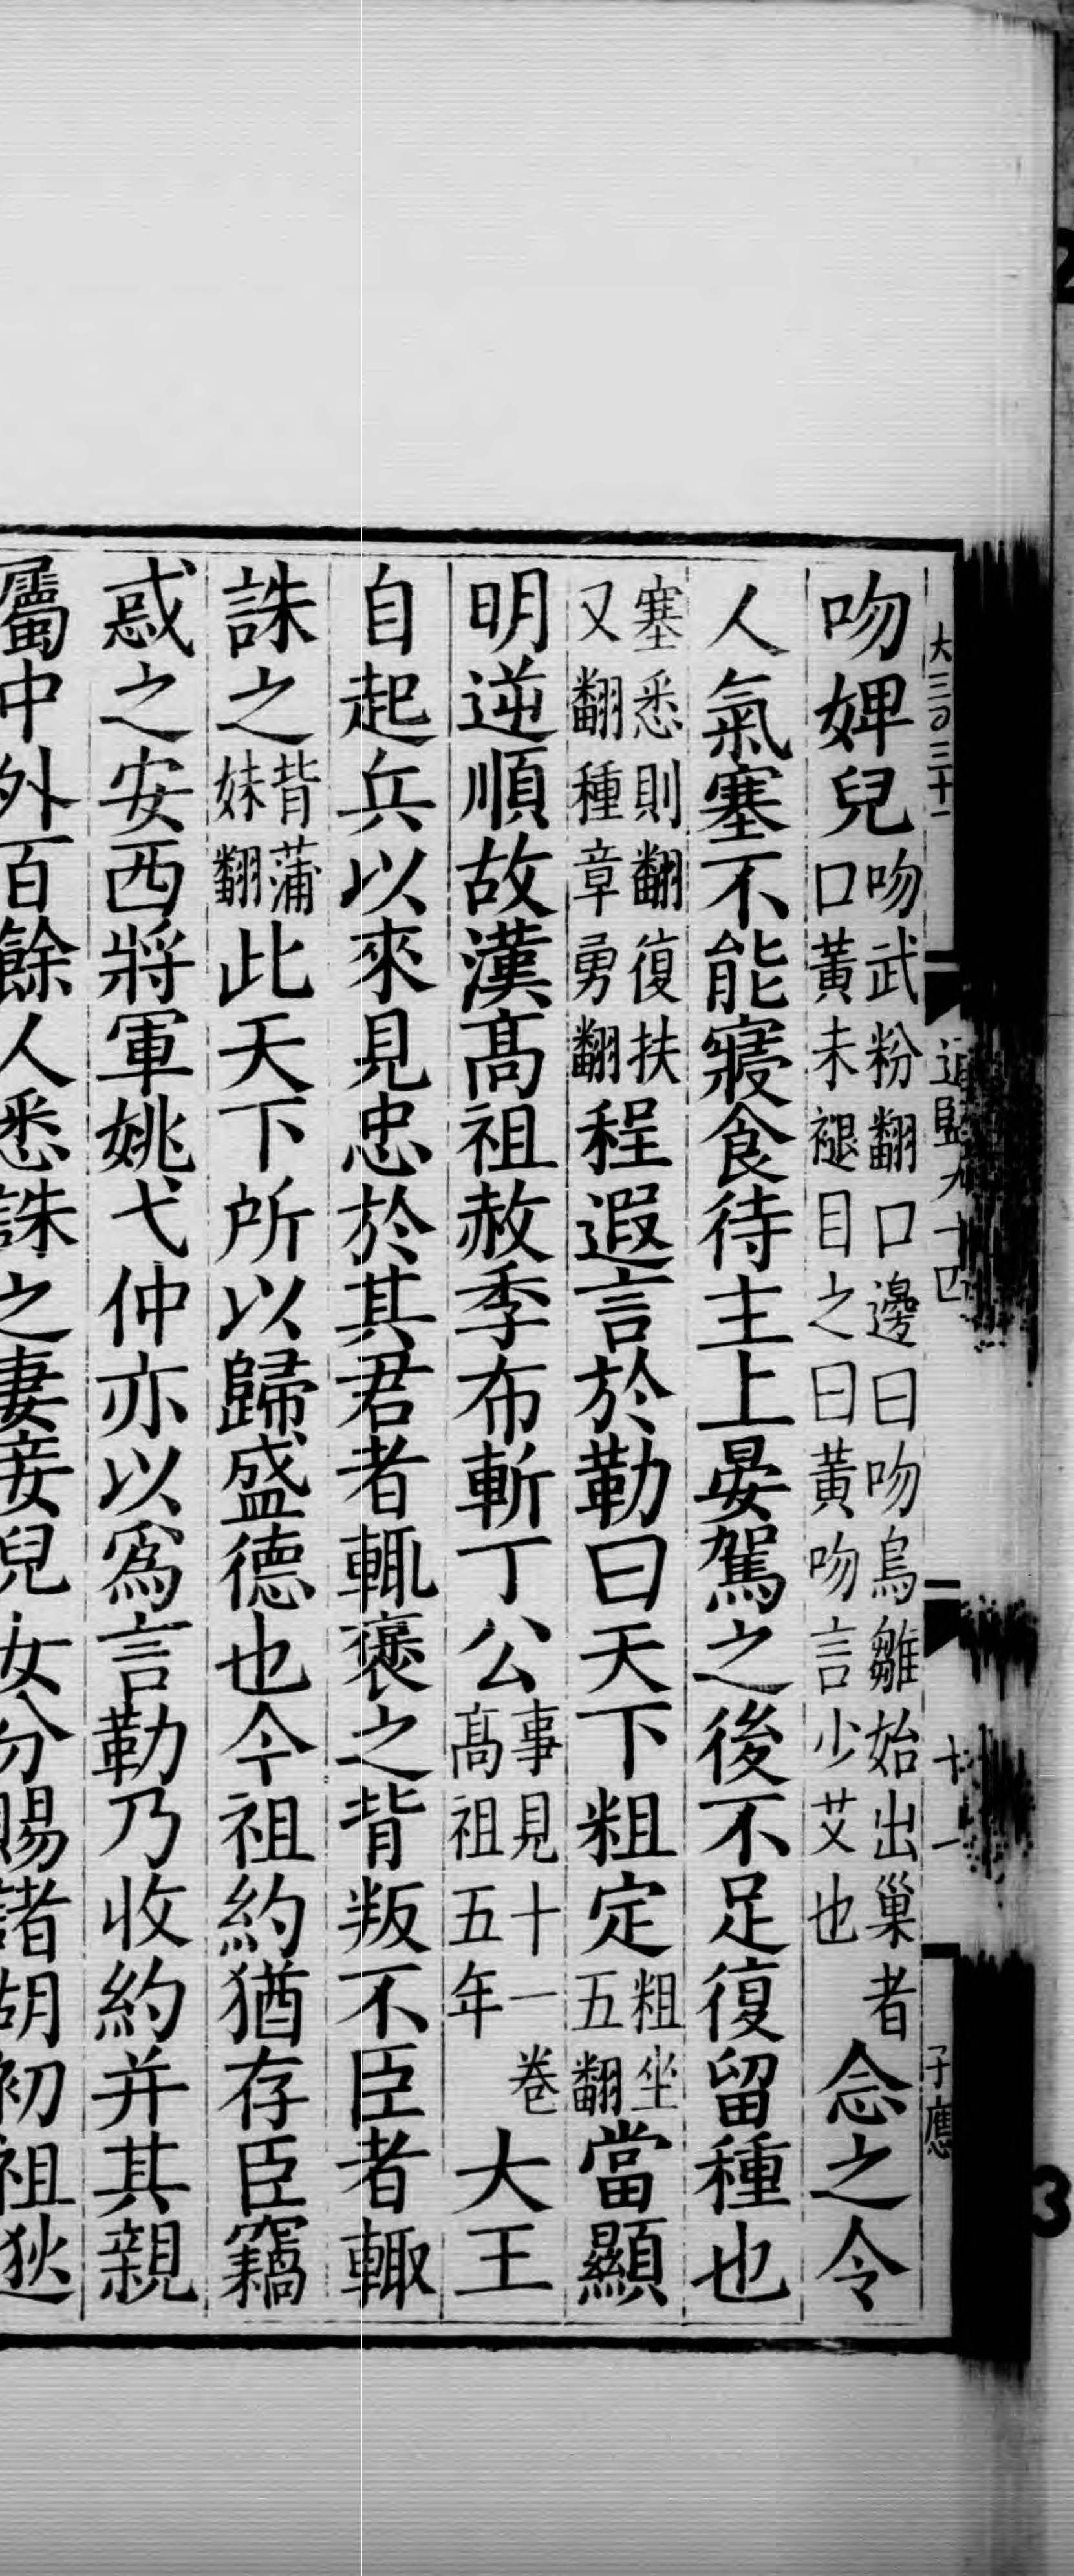 大三百三十一 通鑑九十四 十一 子應
吻婢兒吻武粉翻口邊曰吻鳥雛始出巢者口黃未褪目之曰黃吻言少艾也念之令
人氣塞不能寢食待主上晏駕之後不足復留種也
塞悉則翻復扶又翻種章勇翻程遐言於勒曰天下粗定粗坐五翻當顯
明逆順故漢髙祖赦季布斬丁公事見十一卷髙祖五年大王
自起兵以來見忠於其君者輒褒之背叛不臣者輒
誅之背蒲妹翻此天下所以歸盛德也今祖約猶存臣竊
惑之安西將軍姚弋仲亦以爲言勒乃收約并其親
屬中外百餘人悉誅之妻妾兒女分賜諸胡初祖逖